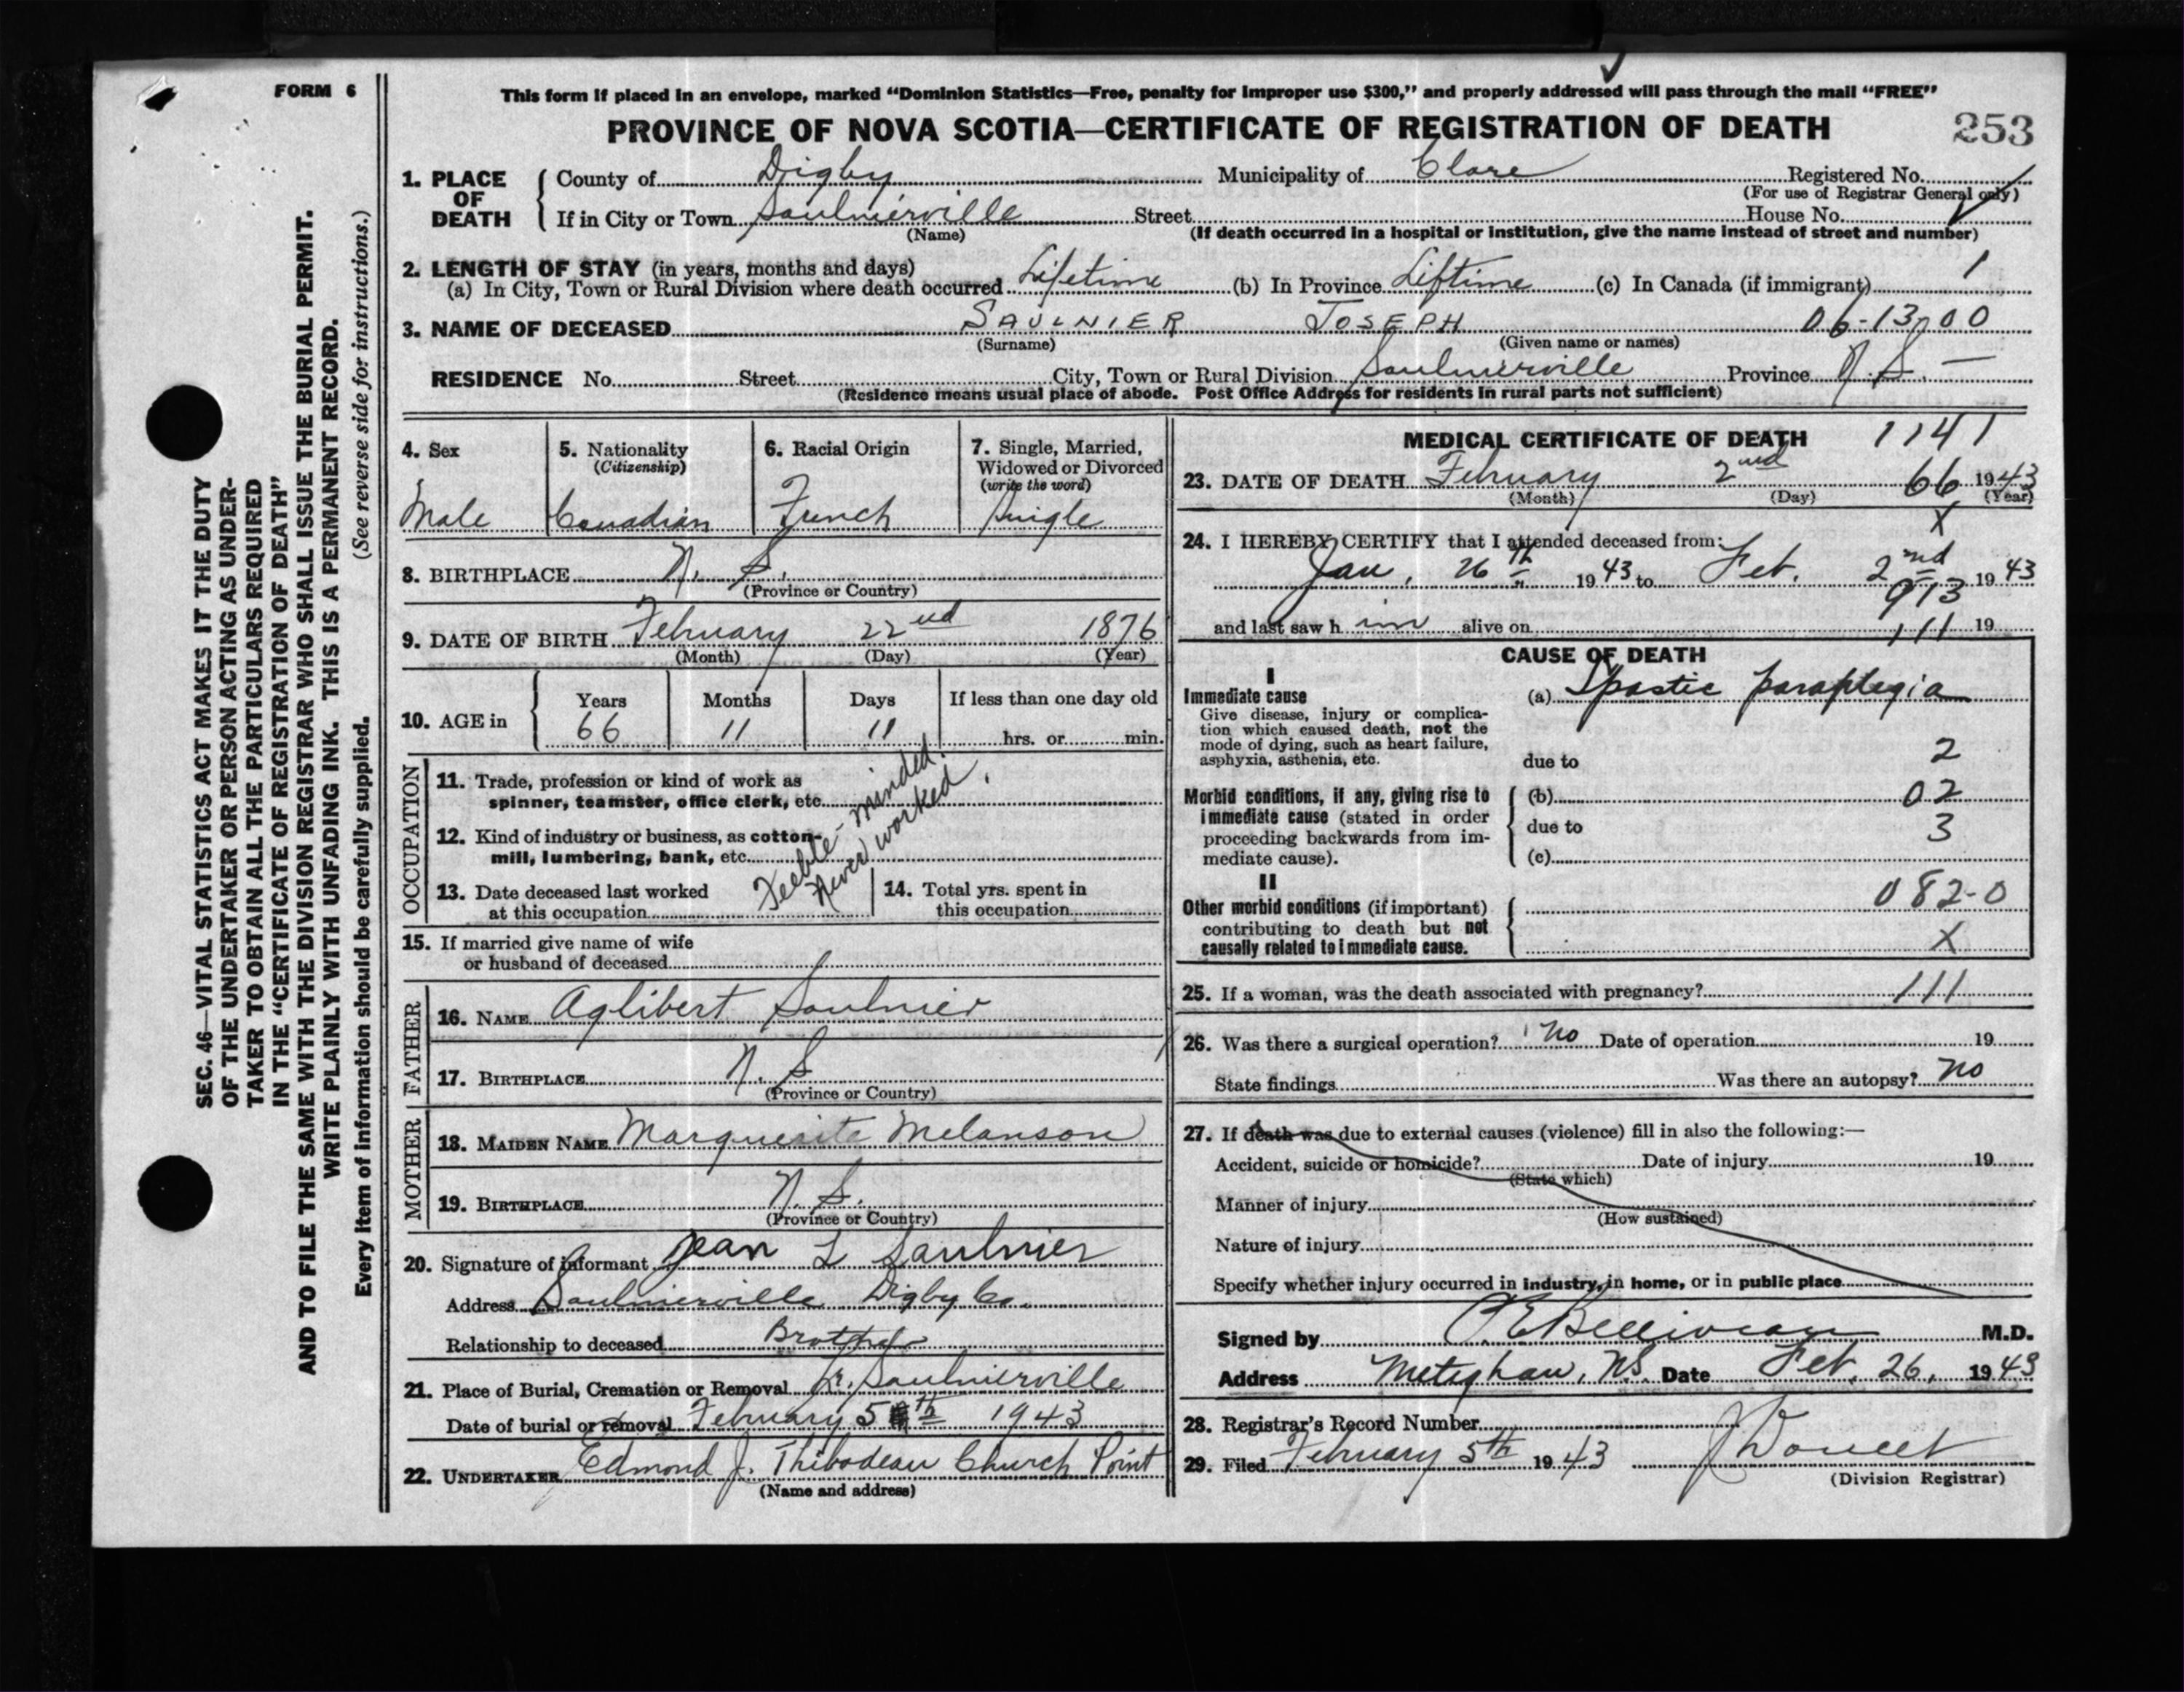 FORM 6
SEC. 46—VITAL STATISTICS ACT MAKES IT THE DUTY
OF THE UNDERTAKER OR PERSON ACTING AS UNDER-
TAKER TO OBTAIN ALL THE PARTICULARS REQUIRED
IN THE "CERTIFICATE OF REGISTRATION OF DEATH"
AND TO FILE THE SAME WITH THE DIVISION REGISTRAR WHO SHALL ISSUE THE BURIAL PERMIT.
WRITE PLAINLY WITH UNFADING INK. THIS IS A PERMANENT RECORD.
Every item of information should be carefully supplied. (See reverse side for instructions.)
This form if placed in an envelope, marked "Dominion Statistics—Free, penalty for improper use $300," and properly addressed will pass through the mail "FREE"
PROVINCE OF NOVA SCOTIA—CERTIFICATE OF REGISTRATION OF DEATH 253
1. PLACE OF DEATH County of Digby Municipality of Clare Registered No.
(For use of Registrar General only)
If in City or Town Saulnierville Street House No.
(Name) (If death occurred in a hospital or institution, give the name instead of street and number)
2. LENGTH OF STAY (in years, months and days)
(a) In City, Town or Rural Division where death occurred Lifetime (b) In Province Liftime (c) In Canada (if immigrant) 1
3. NAME OF DECEASED SAULNIER JOSEPH 06-13700
(Surname) (Given name or names)
RESIDENCE No. Street City, Town or Rural Division Saulnierville Province N.S. —
(Residence means usual place of abode. Post Office Address for residents in rural parts not sufficient)
4. Sex 5. Nationality (Citizenship) 6. Racial Origin 7. Single, Married, Widowed or Divorced (write the word)
Male Canadian French Single
8. BIRTHPLACE N. S.
(Province or Country)
9. DATE OF BIRTH February 22nd 1876
(Month) (Day) (Year)
10. AGE in Years Months Days If less than one day old
66 11 11 hrs. or min.
OCCUPATION
11. Trade, profession or kind of work as
spinner, teamster, office clerk, etc.
12. Kind of industry or business, as cotton-
mill, lumbering, bank, etc.
Feeble-minded.
Never worked.
13. Date deceased last worked
at this occupation
14. Total yrs. spent in
this occupation
15. If married give name of wife
or husband of deceased
FATHER
16. NAME Aglibert Saulnier
17. BIRTHPLACE N. S
(Province or Country)
MOTHER
18. MAIDEN NAME Marguerite Melanson
19. BIRTHPLACE N. S.
(Province or Country)
20. Signature of informant Jean L Saulnier
Address Saulnierville Digby Co.
Relationship to deceased Brother
21. Place of Burial, Cremation or Removal Saulnierville
Date of burial or removal February 5th 1943
22. UNDERTAKER Edmond J. Thibodeau Church Point
(Name and address)
MEDICAL CERTIFICATE OF DEATH 1141
23. DATE OF DEATH February 2nd 66 1943
(Month) (Day) (Year)
X
24. I HEREBY CERTIFY that I attended deceased from:
Jan. 26th 1943 to Feb. 2nd 1943
913
and last saw h im alive on 111 19
CAUSE OF DEATH
I
Immediate cause
Give disease, injury or complica-
tion which caused death, not the
mode of dying, such as heart failure,
asphyxia, asthenia, etc.
(a) Spastic paraplegia
due to 2
Morbid conditions, if any, giving rise to
immediate cause (stated in order
proceeding backwards from im-
mediate cause).
(b) 02
due to 3
(c)
II
Other morbid conditions (if important)
contributing to death but not
causally related to immediate cause.
082-0
X
25. If a woman, was the death associated with pregnancy? 111
26. Was there a surgical operation? No Date of operation 19
State findings Was there an autopsy? No
27. If death was due to external causes (violence) fill in also the following:—
Accident, suicide or homicide? Date of injury 19
(State which)
Manner of injury
(How sustained)
Nature of injury
Specify whether injury occurred in industry, in home, or in public place
Signed by P.E. Belliveau M.D.
Address Meteghan, N.S. Date Feb. 26, 1943
28. Registrar's Record Number
29. Filed February 5th 1943 J Doucet
(Division Registrar)